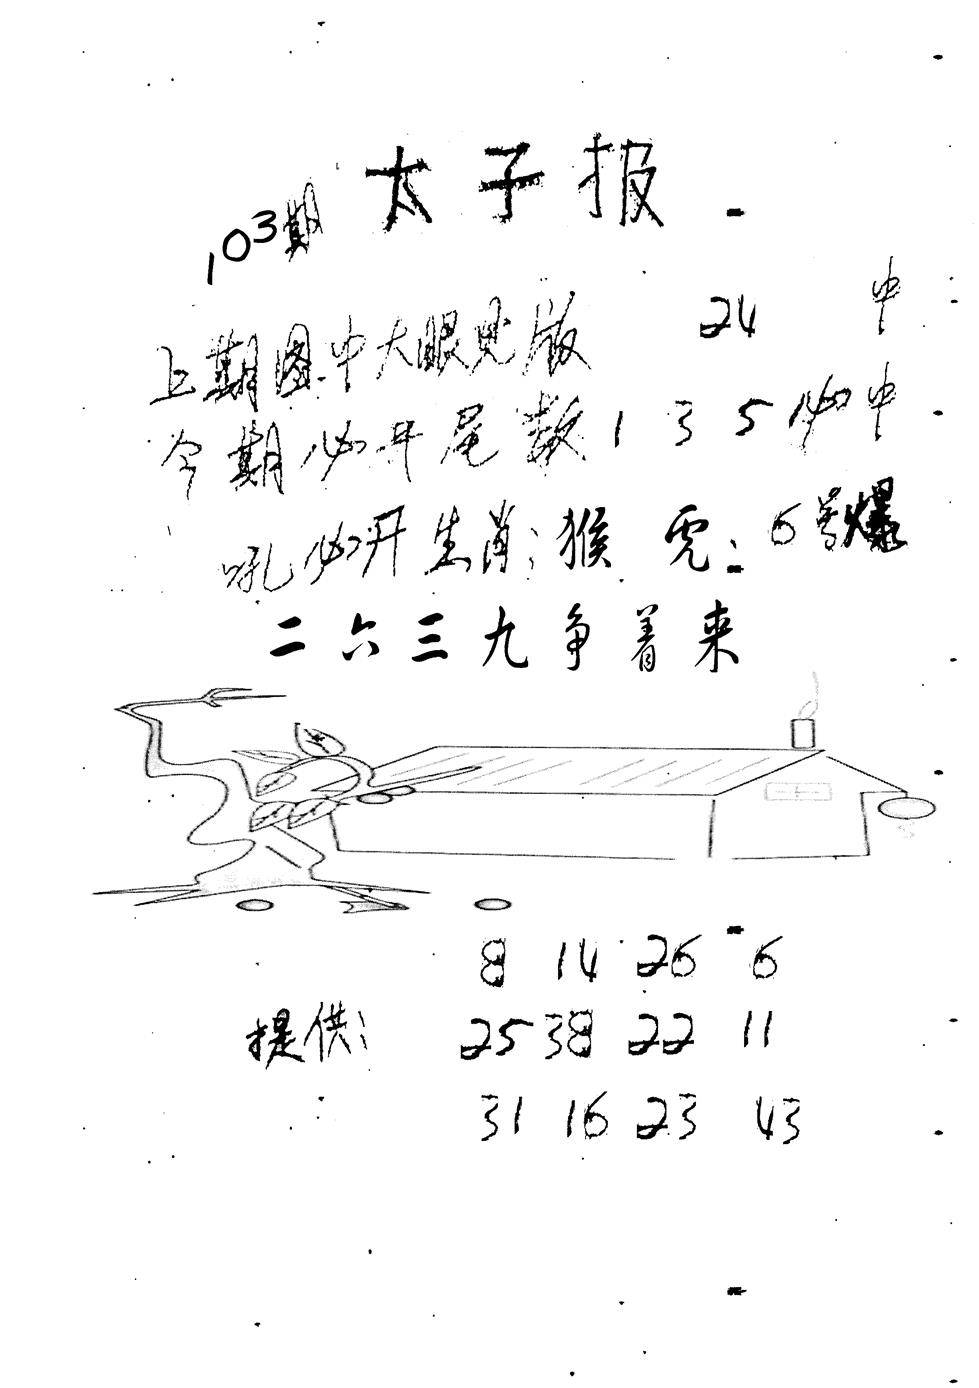 太子报
103期
上期图中大眼见版 24 中
今期必开尾数 1 3 5 必中
吼必开生肖:猴 虎: 6号爆
二六三九争着来
8 14 26 6
提供: 25 38 22 11
31 16 23 43